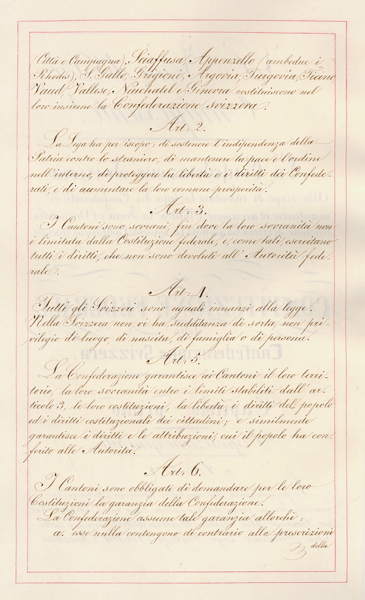 (Città e Campagna), Sciaffusa, Appenzello (ambedue i
Rhodes), S. Gallo, Grigioni, Argovia, Turgovia, Ticino
Vaud, Vallese, Neuchatel e Ginevra costituiscono nel
loro insieme la Confederazione svizzera.
Art. 2.
La Lega ha per iscopo: di sostenere l'indipendenza della
Patria contro lo straniero, di mantenere la pace e l'ordine
nell'interno, di proteggere la libertà e i diritti dei Confede-
rati, e di aumentare la loro comune prosperità.
Art. 3.
I Cantoni sono sovrani, fin dove la loro sovranità non
è limitata dalla Costituzione federale, e come tali, esercitano
tutti i diritti, che non sono devoluti all'Autorità fede-
rale.
Art. 4.
Tutti gli Svizzeri sono uguali innanzi alla legge.
Nella Svizzera non vi ha sudditanza di sorta, non pri-
vilegio di luogo, di nascita, di famiglia o di persona.
Art. 5.
La Confederazione garantisce ai Cantoni il loro terri-
torio, la loro sovranità entro i limiti stabiliti dall'ar-
ticolo 3, le loro costituzioni, la libertà e i diritti del popolo
ed i diritti costituzionali dei cittadini; e similmente
garantisce i diritti e le attribuzioni, cui il popolo ha con-
ferito alle Autorità.
Art. 6.
I Cantoni sono obbligati di domandare per le loro
Costituzioni la garanzia della Confederazione.
La Confederazione assume tale garanzia allorchè,
a. esse nulla contengono di contrario alle prescrizioni
della